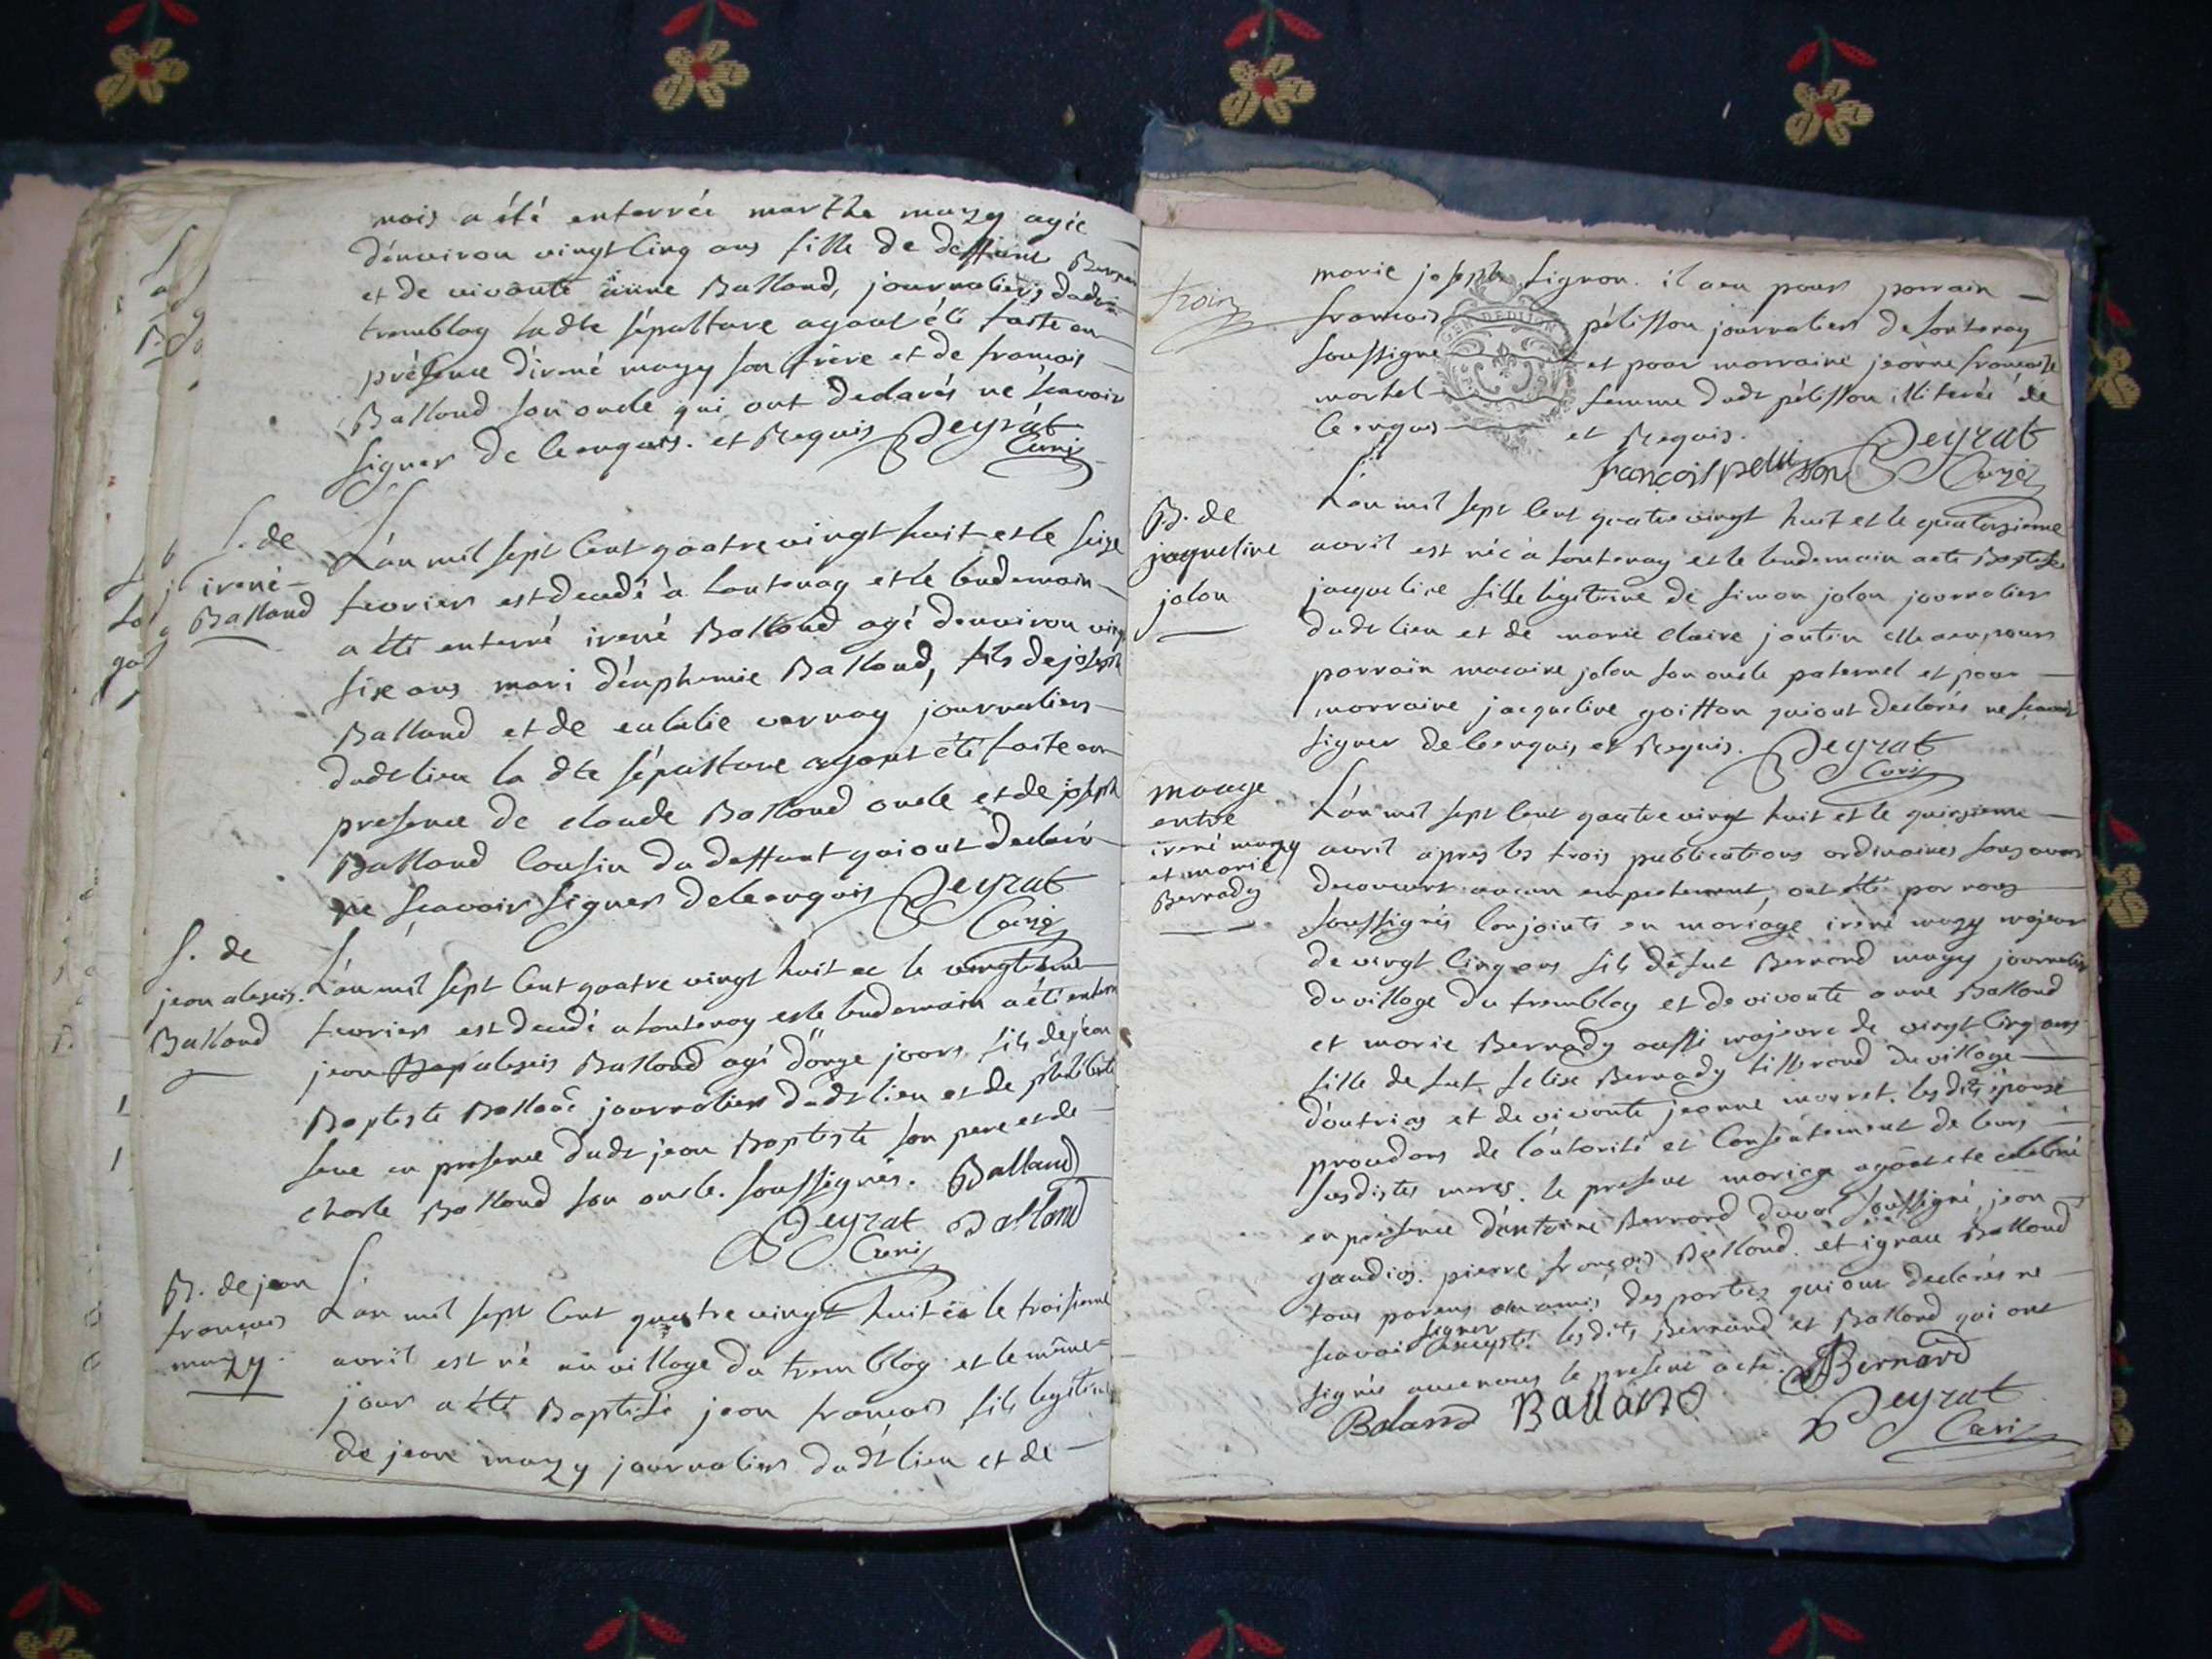 mois a été enterrée marthe mazy agée
d'environ vingt cinq ans fille de deffunt Bernard
et de vivante anne Balland, journaliers dudit
tremblay ladte sépulture ayant été faite en
présence d'irené mazy son frère et de françois
Balland son oncle qui ont declarés ne scavoir
signer de ce enquis. et Requis Peyrat
Curé
S. de
irené
Balland
L'an mil sept cent quatre vingt huit et le seize
fevrier est decedé à Lontenay et le lendemain
a été enterré irené Balland agé d'environ vingt
six ans mari d'euphemie Balland, fils de joseph
Balland et de eulalie vernay journaliers
dudt lieu la dte sépulture ayant été faite en
presence de claude Balland oncle et de joseph
Balland Cousin du deffunt qui ont declaré
ne scavoir signer de ce enquis Peyrat
Curé
S. de
jean alexis
Balland
L'an mil sept cent quatre vingt huit et le vingtieme
fevrier est decedé a Lontenay et le lendemain a été enterré
jean Bap alexis Balland agé d'onze jours fils de jean
Baptiste Balland journalier dudt lieu et de philiberte
en presence dudt jean Baptiste son pere et de
charle Balland son oncle. soussignés. Balland
Peyrat Balland
Curé
B. de jean
françois
mazy
L'an mil sept cent quatre vingt huit et le troisieme
avril est né au village du tremblay et le même
jour a été Baptisé jean françois fils legitime
de jean mazy journalier dudt lieu et de
trois
marie joseph Lignon. il a eu pour parrain
françois pélisson journalier de Lontenay
soussigné et pour marraine jeanne françoise
martel femme dudt pélisson illiterée de
ce enquis et Requis.
françois pelisson Peyrat
Curé
B. de
jaqueline
jolon
L'an mil sept cent quatre vingt huit et le quatorzieme
avril est née à Lontenay et le lendemain a été Baptisée
jacqueline fille legitime de simon jolon journalier
dudt lieu et de marie claire jantin elle a eu pour
parrain macaire jolon son oncle paternel et pour
marraine jacqueline goiffon qui ont declarés ne scavoir
signer de ce enquis et Requis. Peyrat
Curé
mariage
entre
irené mazy
et marie
Bernady
L'an mil sept cent quatre vingt huit et le quinzieme
avril apres les trois publications ordinaires sans avoir
decouvert aucun empechement, ont été par nous
soussignés Conjoints en mariage irené mazy majeur
de vingt cinq ans fils de fut Bernard mazy journalier
du village du tremblay et de vivante anne Balland
et marie Bernady aussi majeure de vingt cinq ans
fille de fut felix Bernady tisserand du village
d'outriaz et de vivante jeanne morret. lesdits epoux
procedans de l'autorité et Consentement de leurs
susdites meres. le present mariage ayant eté celebré
en presence d'antoine Bernard duval soussigné, jean
gaudias. pierre françois Balland. et ignace Balland
tous parens ou amis des parties qui ont declarés ne
scavoir signer excepté lesdits Bernard et Balland qui ont
signés avec nous le present acte. Bernard
Baland Balland Peyrat
Curé